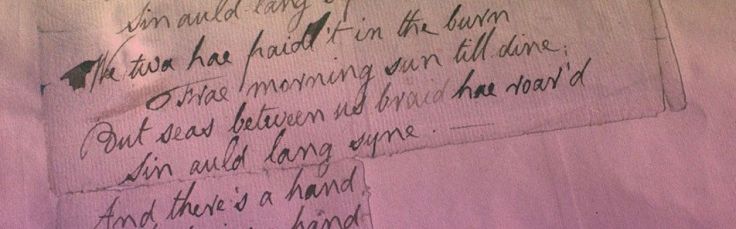 sin auld lang sy
We twa hae paidl't in the burn
Frae morning sun till dine;
But seas between us braid hae roar'd
sin auld lang syne.
And there's a hand,
hand